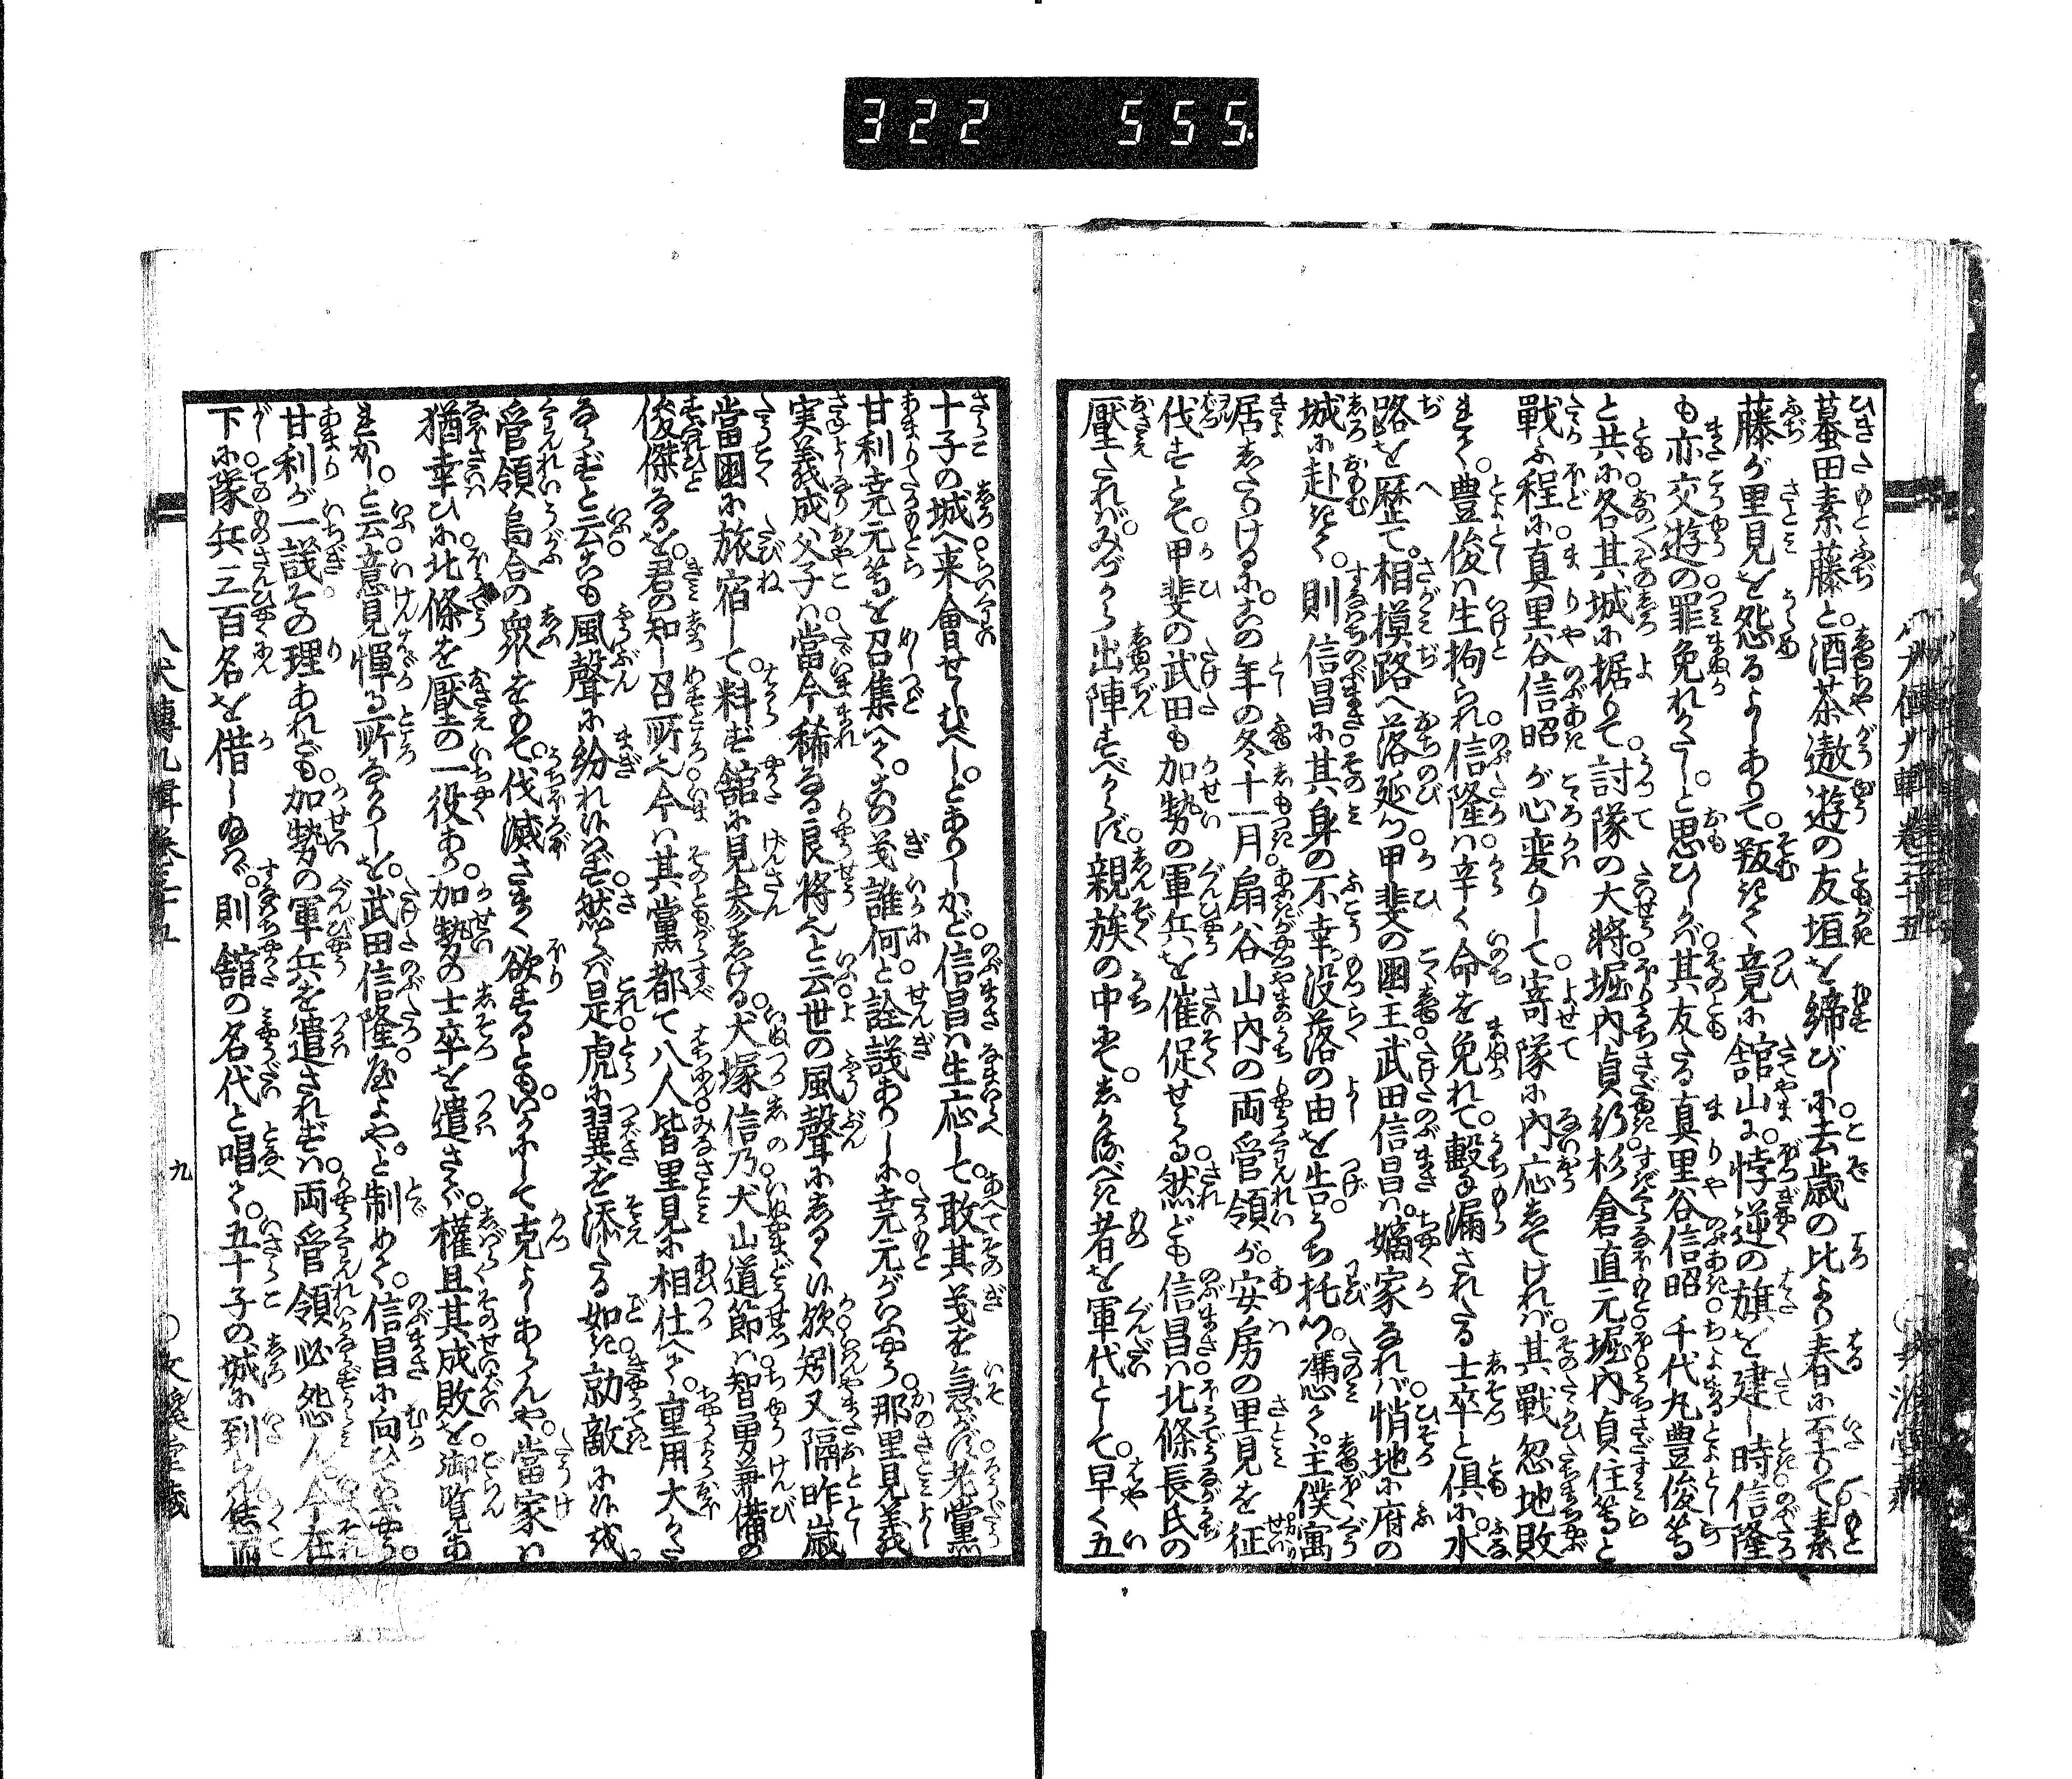 322 555
蟇田素藤と。酒茶遨遊の友垣を締びしに。去歳の比より春に至りて。素
藤が里見を怨るよしありて。叛きて竟に舘山に。悖逆の旗を建し時。信隆
も亦交遊の罪免れがたし。と思ひしかば。其友たる真里谷信昭。千代丸豊俊等
と共に。各其城に据りて。討隊の大将。堀内貞行。杉倉直元。堀内貞住等と
戦ふ程に。真里谷信昭が心変りして。寄隊に内応してければ。其戦忽地敗
れて。豊俊は生拘られ。信隆は。辛く命を免れて。撃も漏されたる士卒と倶に。水
路を歴て。相模路へ落延つ。甲斐の国主武田信昌は。嫡家なれば。悄地に府の
城に赴きて。則信昌に。其身の不幸。没落の由を告。うち托つ。憑て。主僕寓
居したりける。に。この年の冬十一月。扇谷山内の両管領が。安房の里見を征
伐すとて。甲斐の武田も加勢の軍兵を催促せらる。然ども信昌は。北條長氏の
壓たれば。みづから出陣すべからず。親族の中にて。しかるべき者を軍代として。早く五
十子の城へ来會せしむべし。とありしかど。信昌は生応して。敢其義を急がず。老黨
甘利尭元等を召集へて。この義誰何と詮議ありしに。尭元がいふやう。那里見義
実義成父子は。當今稀なる良将也と云。世の風聲にしるく候歟。矧又隔昨歳
當國に旅宿して。料ず舘に見参しける。犬塚信乃。犬山道節は。智勇兼備の
俊傑なるを。君の知し召所也。今は其黨都て八人。皆里見に相仕へて。重用大かた
ならずと云。こも風聲に紛れ候はず。然らば是。虎に翼を添たる如き。勍敵に候哉。
管領烏合の衆をもて。伐滅さまく欲するとも。いかにして克よしあらんや。當家は
猶幸ひに。北條を壓の一役あり。加勢の士卒を遣さで。權且其成敗を。御覧あ
れかし。と云意見憚る所なかりしを。武田信隆。噫よや。と制めて。信昌に向ひていふやう。
甘利が一議その理あれども。加勢の軍兵を遣されずは。両管領必怨ん。今在
下に隊兵三百名を借し給はゞ。則舘の名代と唱て。五十子の城に到らん。恁而
八犬傳九輯巻三十五
九
○文溪堂藏